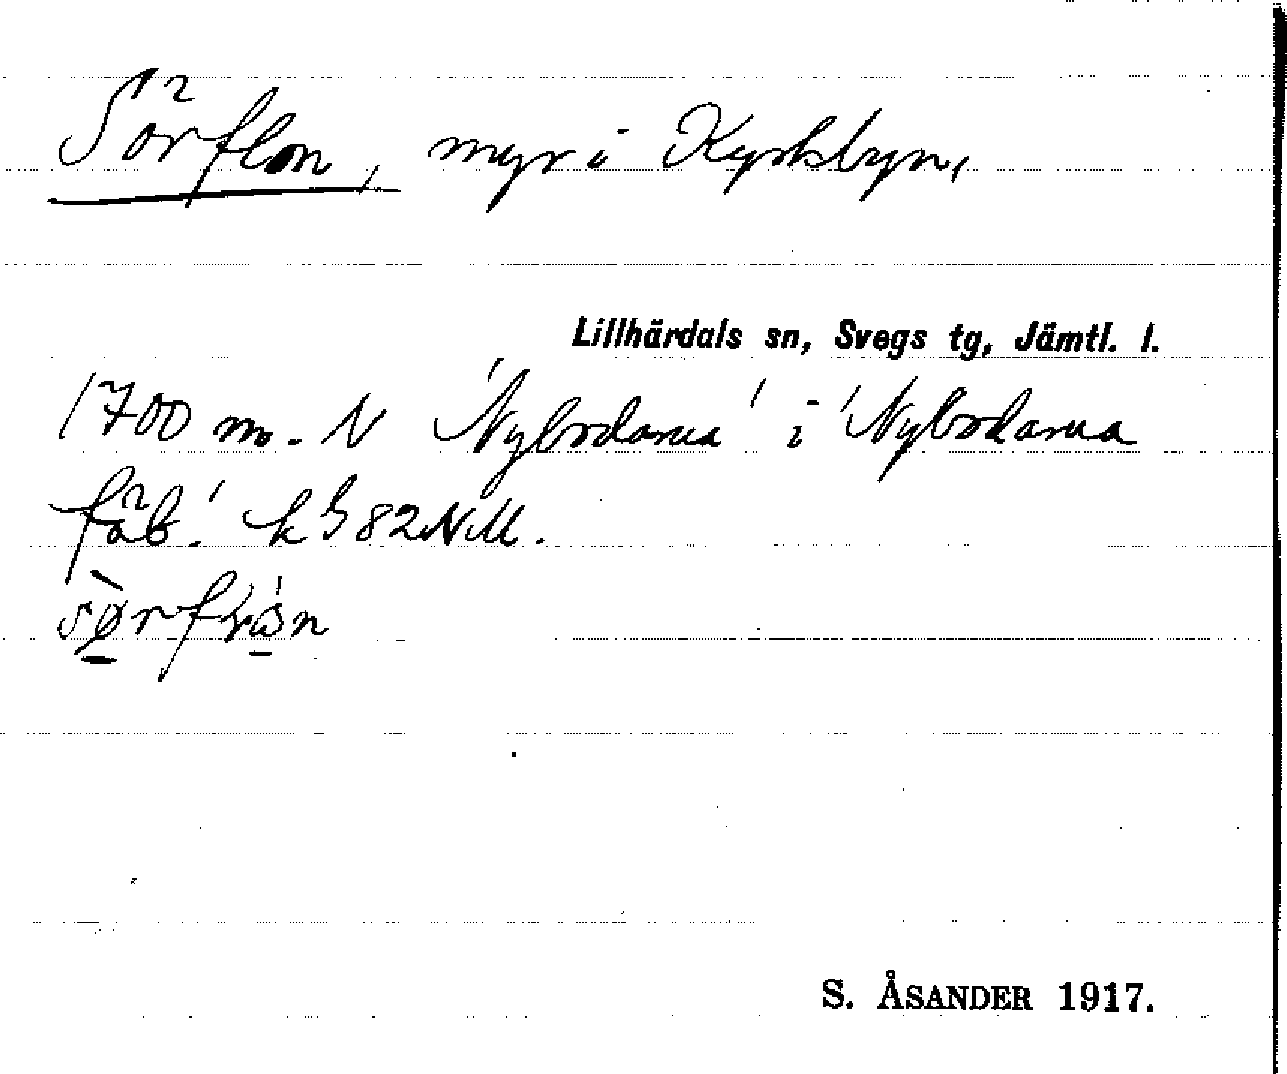 Sörflon, myr i Kyrkbyn,
Lillhärdals sn, Svegs tg, Jämtl. l.
1700 m. N 'Nybodarna' i 'Nybodarna
fäb.' k 82 NM.
S. ÅSANDER 1917.